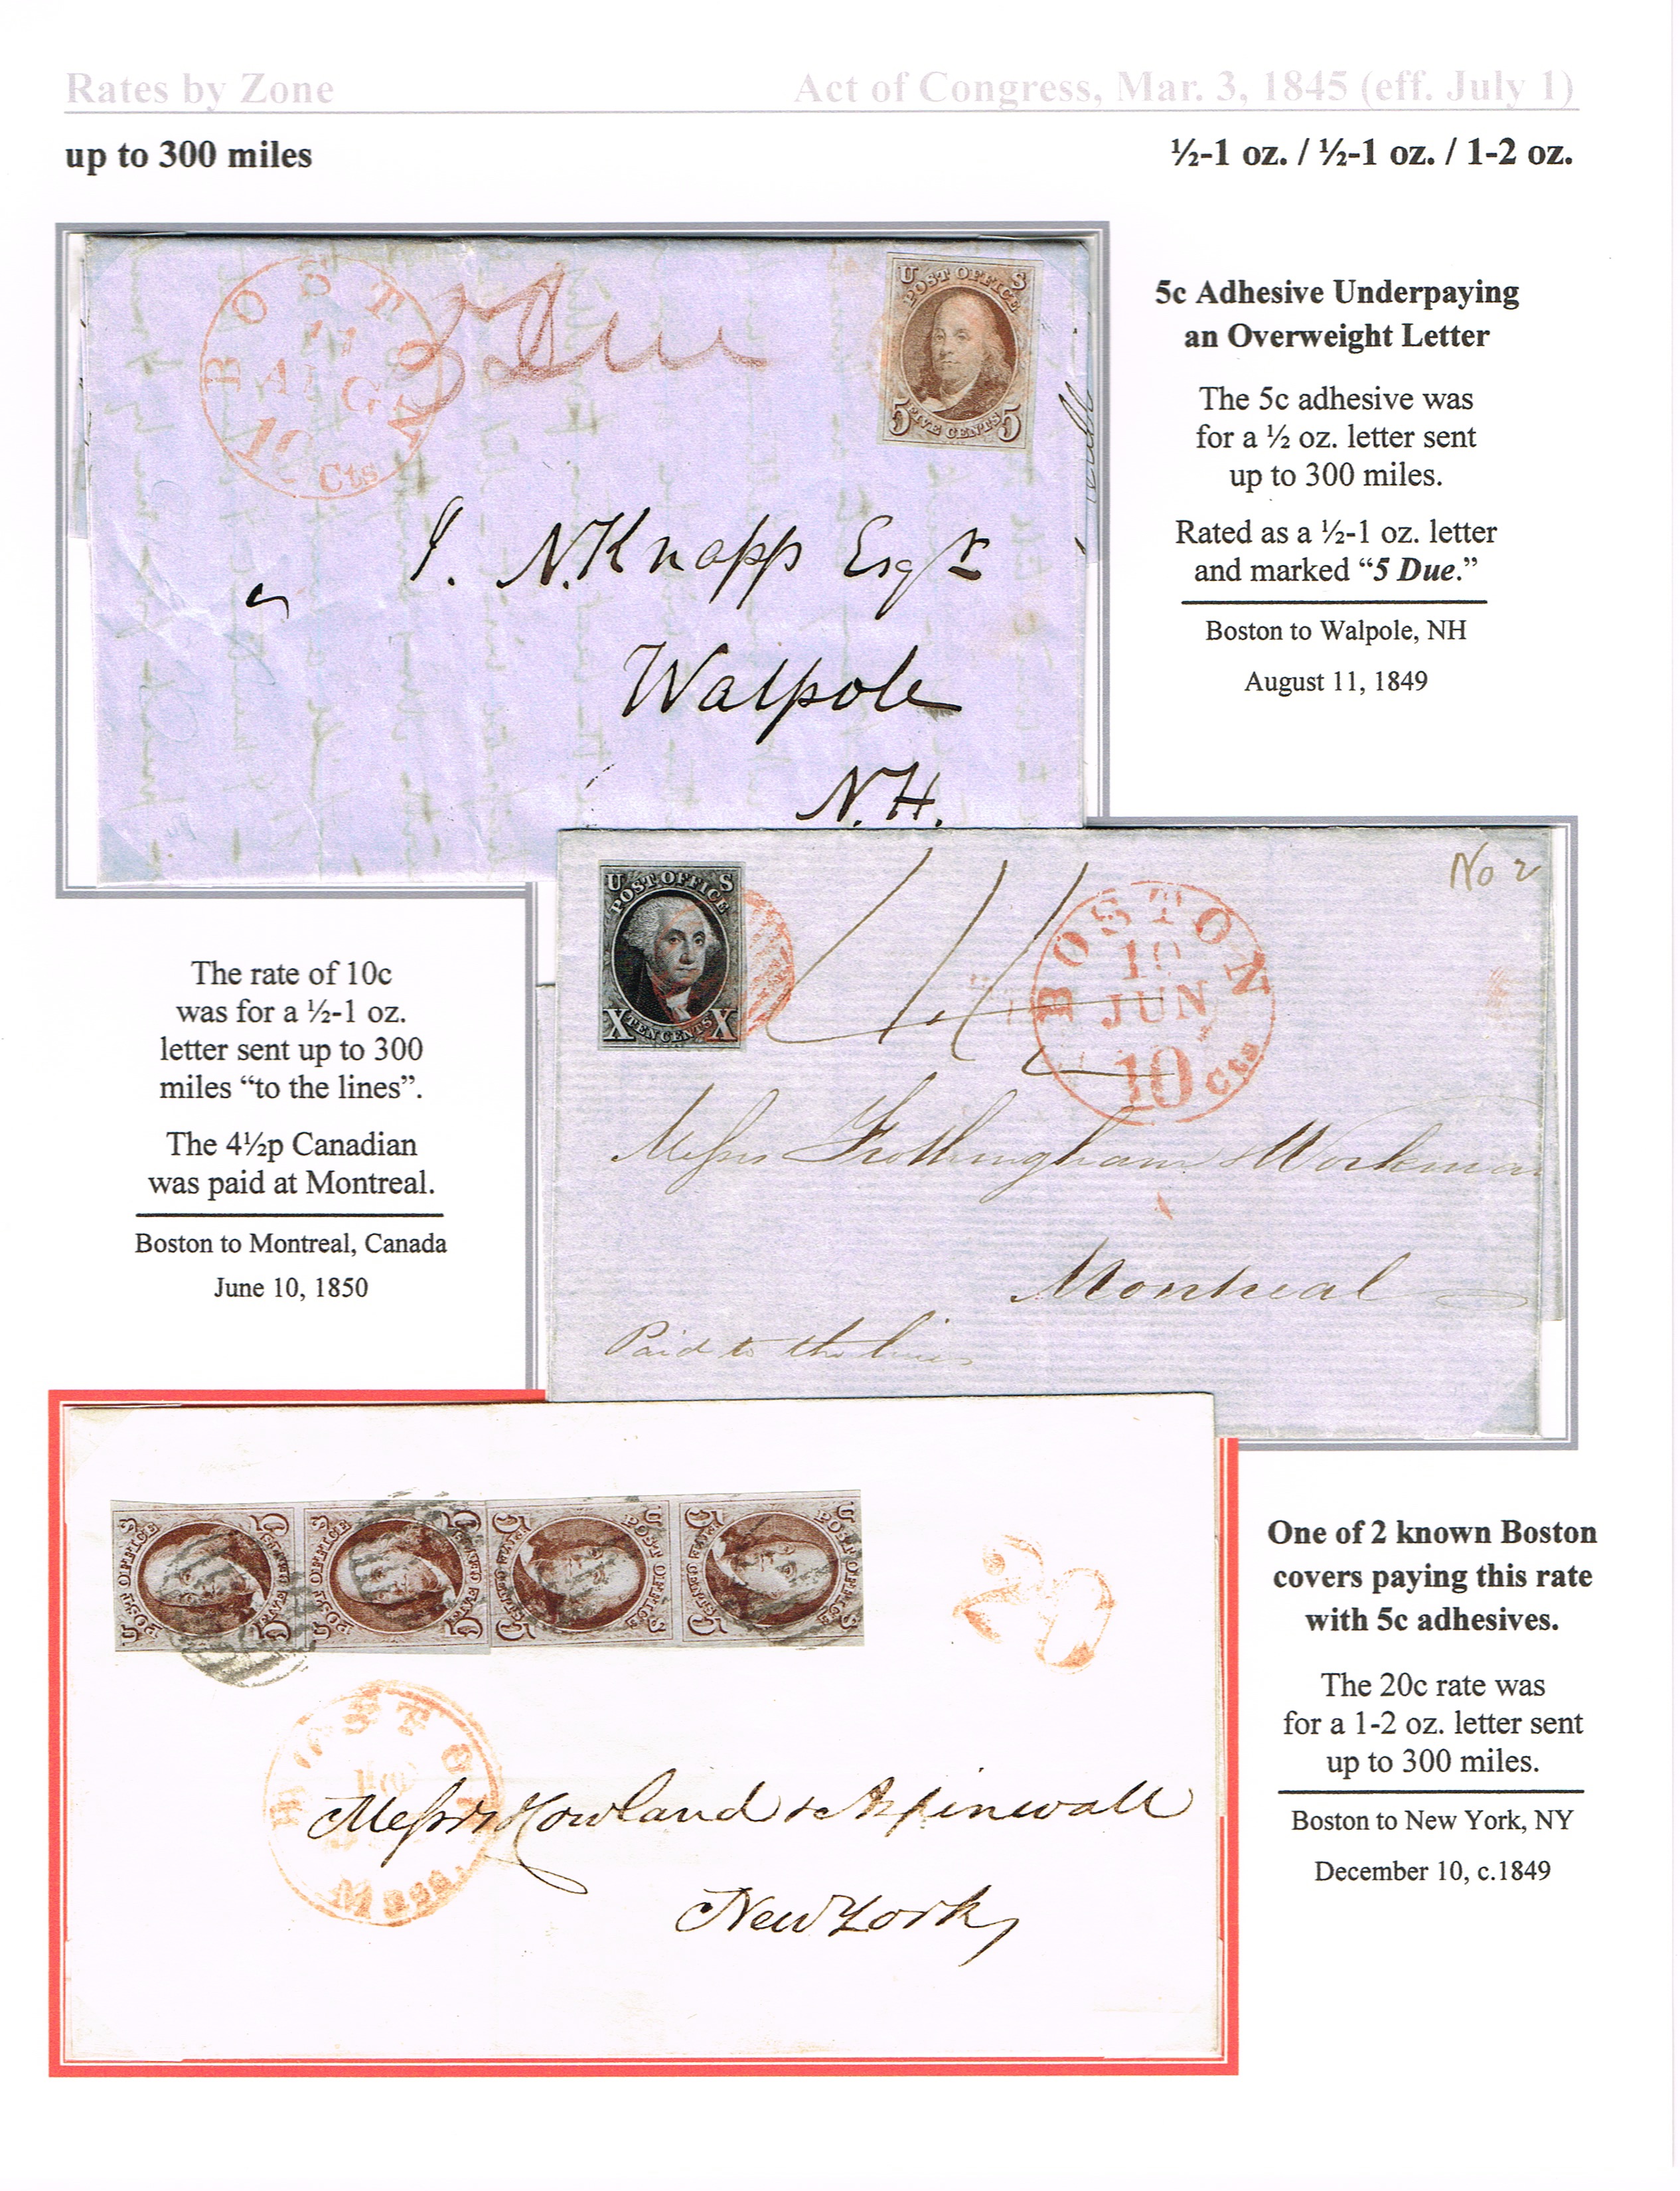 Rates by Zone
Act of Congress, Mar. 3, 1845 (eff. July 1)
up to 300 miles
½-1 oz. / ½-1 oz. / 1-2 oz.
BOSTON
11
AUG
10
Cts
5 Due
U S
POST OFFICE
5 FIVE CENTS 5
J. N. Knapp Esqr
Walpole
N.H.
5c Adhesive Underpaying
an Overweight Letter
The 5c adhesive was
for a ½ oz. letter sent
up to 300 miles.
Rated as a ½-1 oz. letter
and marked “5 Due.”
Boston to Walpole, NH
August 11, 1849
U S
POST OFFICE
X TEN CENTS X
BOSTON
10
JUN
10 cts
No 2
Messrs Frothingham & Workman
Montreal
Paid to the lines
The rate of 10c
was for a ½-1 oz.
letter sent up to 300
miles “to the lines”.
The 4½p Canadian
was paid at Montreal.
Boston to Montreal, Canada
June 10, 1850
U S
POST OFFICE
5 FIVE CENTS 5
U S
POST OFFICE
5 FIVE CENTS 5
U S
POST OFFICE
5 FIVE CENTS 5
U S
POST OFFICE
5 FIVE CENTS 5
20
BOSTON
10
Mass.
Messrs Howland & Aspinwall
New York
One of 2 known Boston
covers paying this rate
with 5c adhesives.
The 20c rate was
for a 1-2 oz. letter sent
up to 300 miles.
Boston to New York, NY
December 10, c.1849